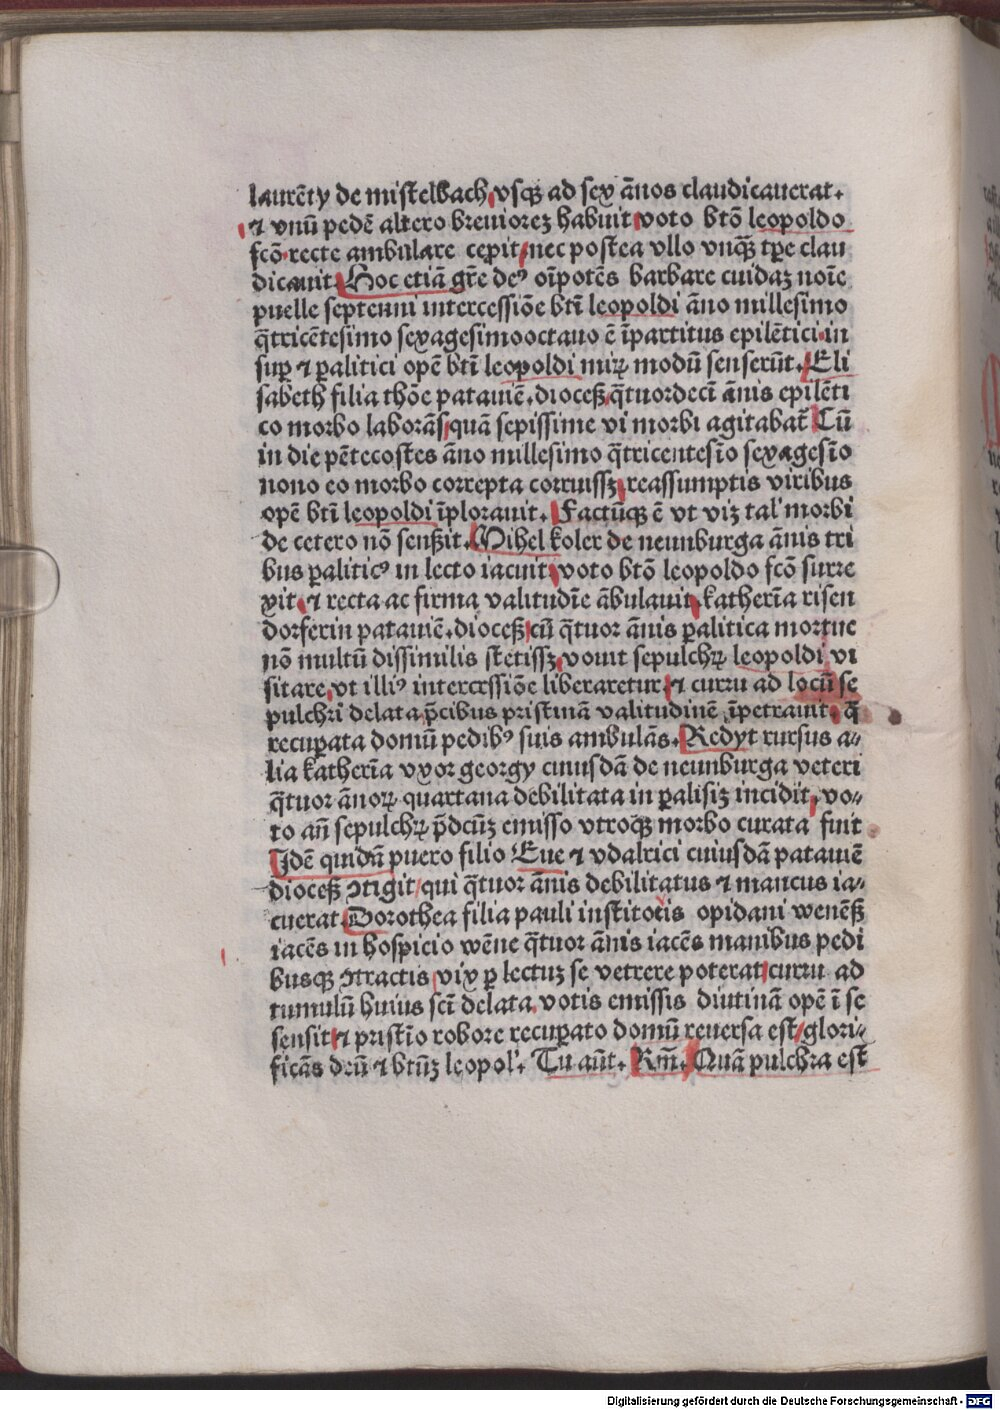 laurēty de mistelbach vsqꝫ ad sex ānos claudicauerat.
⁊ vnū pedē altero breuiorez habuit voto btō leopoldo
fcō recte ambulare cepit nec postea vllo vnqꝫ tꝑe clau
dicauit. Hoc etiā gr̄e deꝰ oīpotēs barbare cuidaz noīe
puelle septenni intercessiōe btī leopoldi āno millesimo
q̄tricētesimo sexagesimooctauo ē īpartitus epilētici in
suꝑ ⁊ ꝑalitici opē btī leopoldi miꝝ modū senserūt. Eli
sabeth filia thōe patauiē. dioceß q̄tuordecī ānis epilēti
co morbo laborās quā sepissime vi morbi agitabat̄ Cū
in die pētecostes āno millesimo q̄tricentesīo sexagesīo
nono eo morbo correpta corruissꝫ reassumptis viribus
opē btī leopoldi īplorauit. Factūqꝫ ē vt viz tal' morbi
de cetero nō senßit. Mihel koler de neunburga ānis tri
bus ꝑaliticꝰ in lecto iacuit voto btō leopoldo fcō surre
xit ⁊ recta ac firma valitudīe ābulauit katherīa risen
dorferin patauiē. dioceß cū q̄tuor ānis ꝑalitica mortue
nō multū dissimilis stetissꝫ vouit sepulchꝝ leopoldi vi
sitare vt illiꝰ intercrssiōe liberaretur ⁊ curru ad locū se
pulchri delata p̄cibus pristinā valitudinē īpetrauit q̄
recuꝑata domū pedibꝰ suis ambulās. Redyt rursus a⸗
lia katherīa vxor georgy cuiusdā de neunburga veteri
q̄tuor ānoꝝ quartana debilitata in ꝑalisiz incidit, vo⸗
to an̄ sepulchꝝ p̄dcūz emisso vtroqꝫ morbo curata fuit
Idē quidā puero filio Eue ⁊ vdalrici cuiusdā patauiē
dioceß ꝯtigit qui q̄tuor ānis debilitatus ⁊ mancus ia⸗
cuerat. Dorothea filia pauli institoris opidani wenēß
iacēs in hospicio wēne q̄tuor ānis iacēs manibus pedi
busqꝫ ꝯtractis vix ꝑ lectuz se vetrere poterat curru ad
tumulū huius scī delata votis emissis diutinā opē ī se
sensit ⁊ pristīo robore recuꝑato domū reuersa est glori⸗
ficās drū ⁊ btūz leopol'. Tu aūt. Rm̄. Quā pulchra est
Digitalisierung gefördert durch die Deutsche Forschungsgemeinschaft - DFG